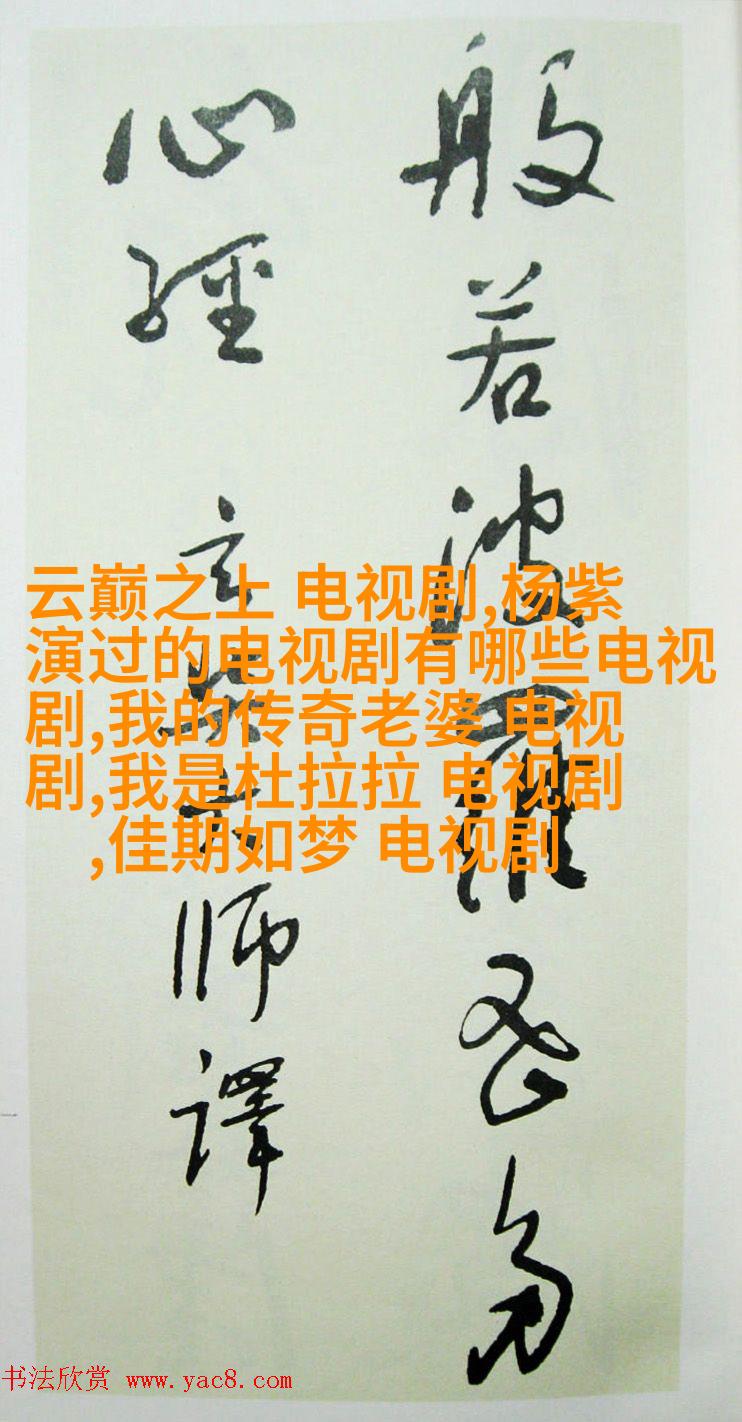 般若波羅蜜多
心經 玄奘法師譯
云巅之上 电视剧,杨紫
演过的电视剧有哪些电视
剧,我的传奇老婆 电视
剧,我是杜拉拉 电视剧
,佳期如梦 电视剧
书法欣赏 www.yac8.com